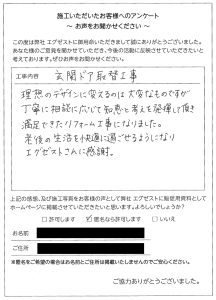 施工いただいたお客様へのアンケート
～ お声をお聞かせください ～
この度は弊社 エグゼストに御用命いただきまして誠にありがとうございました。
あなた様のご意見を聞かせていただき、今後の活動に反映させていただきたいと
考えております。ぜひお声をお聞かせください。
工事内容 玄関ドア取替工事
理想のデザインに変えるのは大変なものですが
丁寧に相談に応じて知恵と考えを発揮して頂き
満足できたリフォーム工事になりました。
老後の生活を快適に過ごせるようになり
エグゼストさんに感謝。
上記の感想、及び施工写真をお客様の声として弊社 エグゼストに販促用資料として
ホームページに掲載させていただきたいと思います。よろしいでしょうか？
□ 許可します ☑ 匿名なら許可します □ いいえ
お名前
ご住所
※匿名をご希望の場合はお名前とご住所は掲載いたしませんのでご安心ください。
ご協力ありがとうございました。